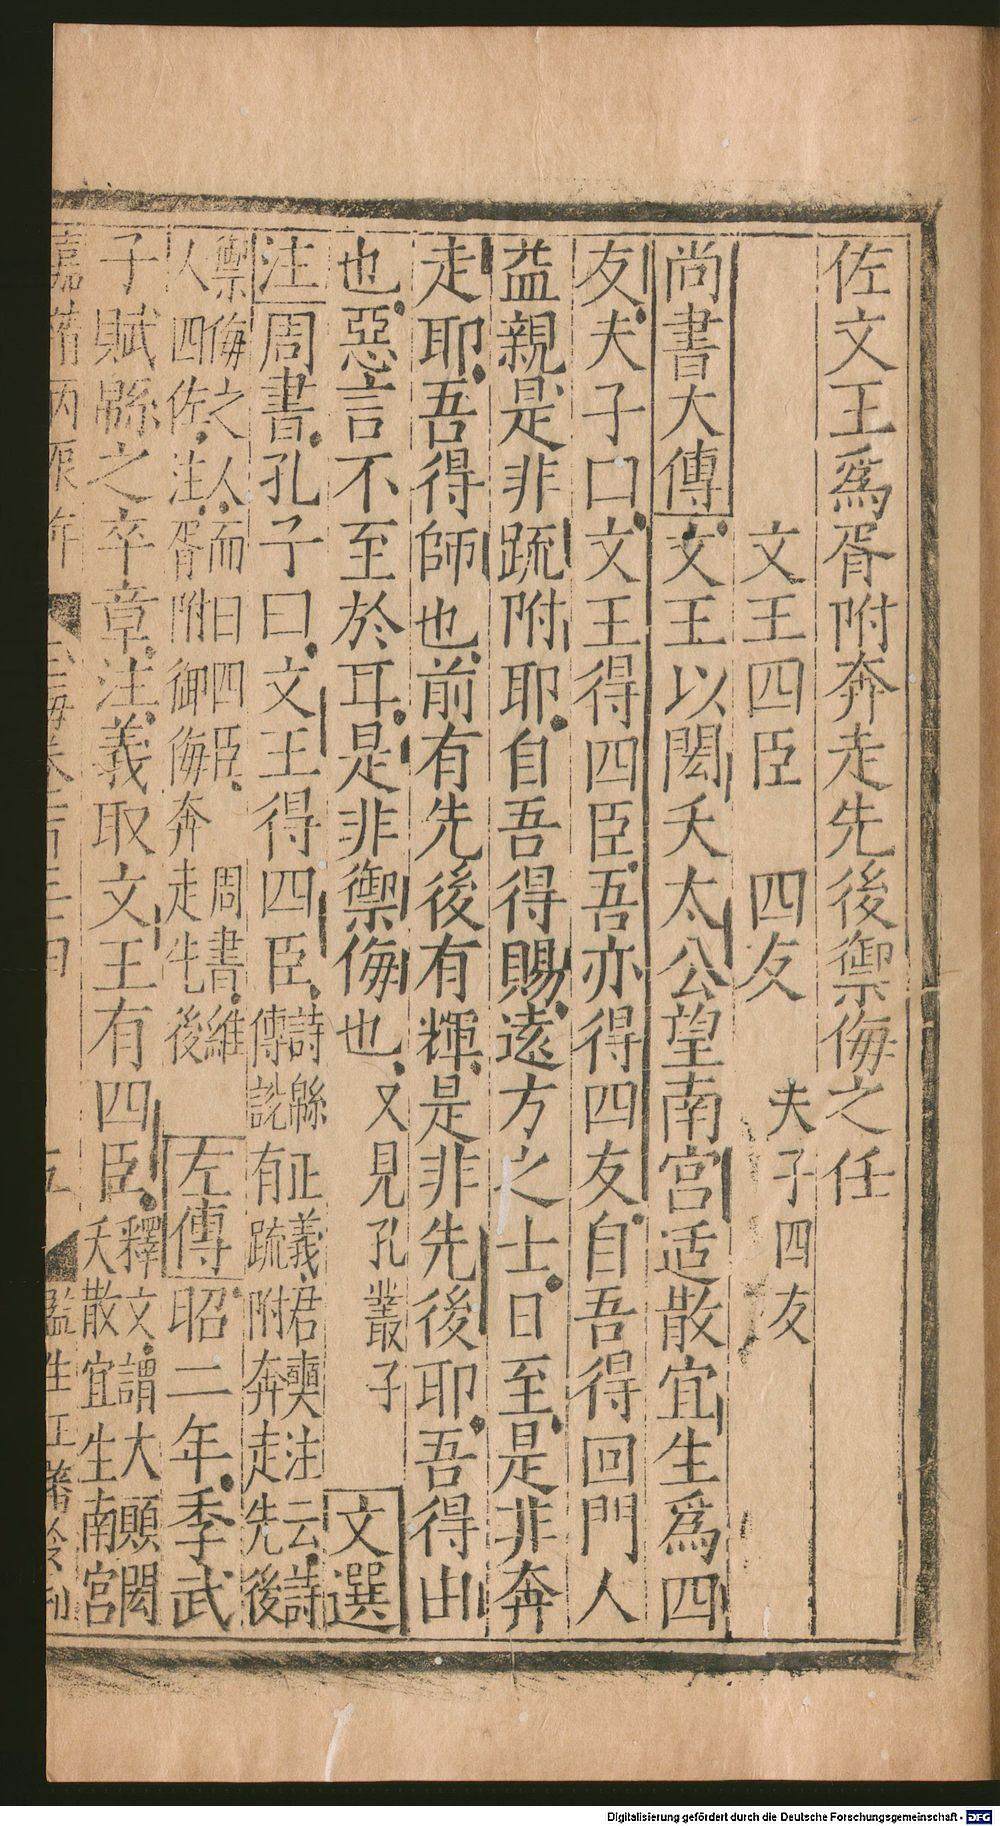 佐文王爲胥附奔走先後禦侮之任
文王四臣　四友　夫子四友
尚書大傳文王以閎夭太公望南宮适散宜生爲四
友夫子曰文王得四臣吾亦得四友自吾得回門人
益親是非疏附耶自吾得賜遠方之士日至是非奔
走耶吾得師也前有先後有輝是非先後耶吾得由
也惡言不至於耳是非禦侮也又見孔叢子　文選
注周書孔子曰文王得四臣詩緜正義君奭注云詩
傳説有疏附奔走先後
禦侮之人而曰四臣周書維
人四佐注胥附御侮奔走先後
左傳昭二年季武
子賦緜之卒章注義取文王有四臣釋文謂大顚閎
夭散宜生南宮
嘉靖丙辰年　玉海卷　五　監生　刊
Digitalisierung gefördert durch die Deutsche Forschungsgemeinschaft - DFG